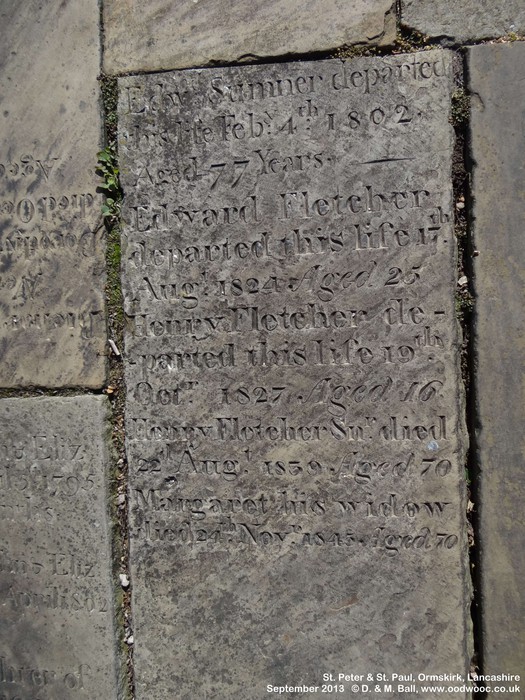 Edwd. Sumner departed
this life Feby. 4th 1802.
Aged 77 Years.
Edward Fletcher
departed this life 17th
Augt. 1824 Aged 25
Henry Fletcher de-
-parted this life 19th.
Octr. 1827 Aged 16
Henry Fletcher Snr. died
22d Augt. 1839 Aged 70
Margaret his widow
died 24th Novr. 1845. Aged 70
Eliz
1795
Eliz
April 1802
of
St. Peter & St. Paul, Ormskirk, Lancashire
September 2013 © D. & M. Ball, www.oodwooc.co.uk